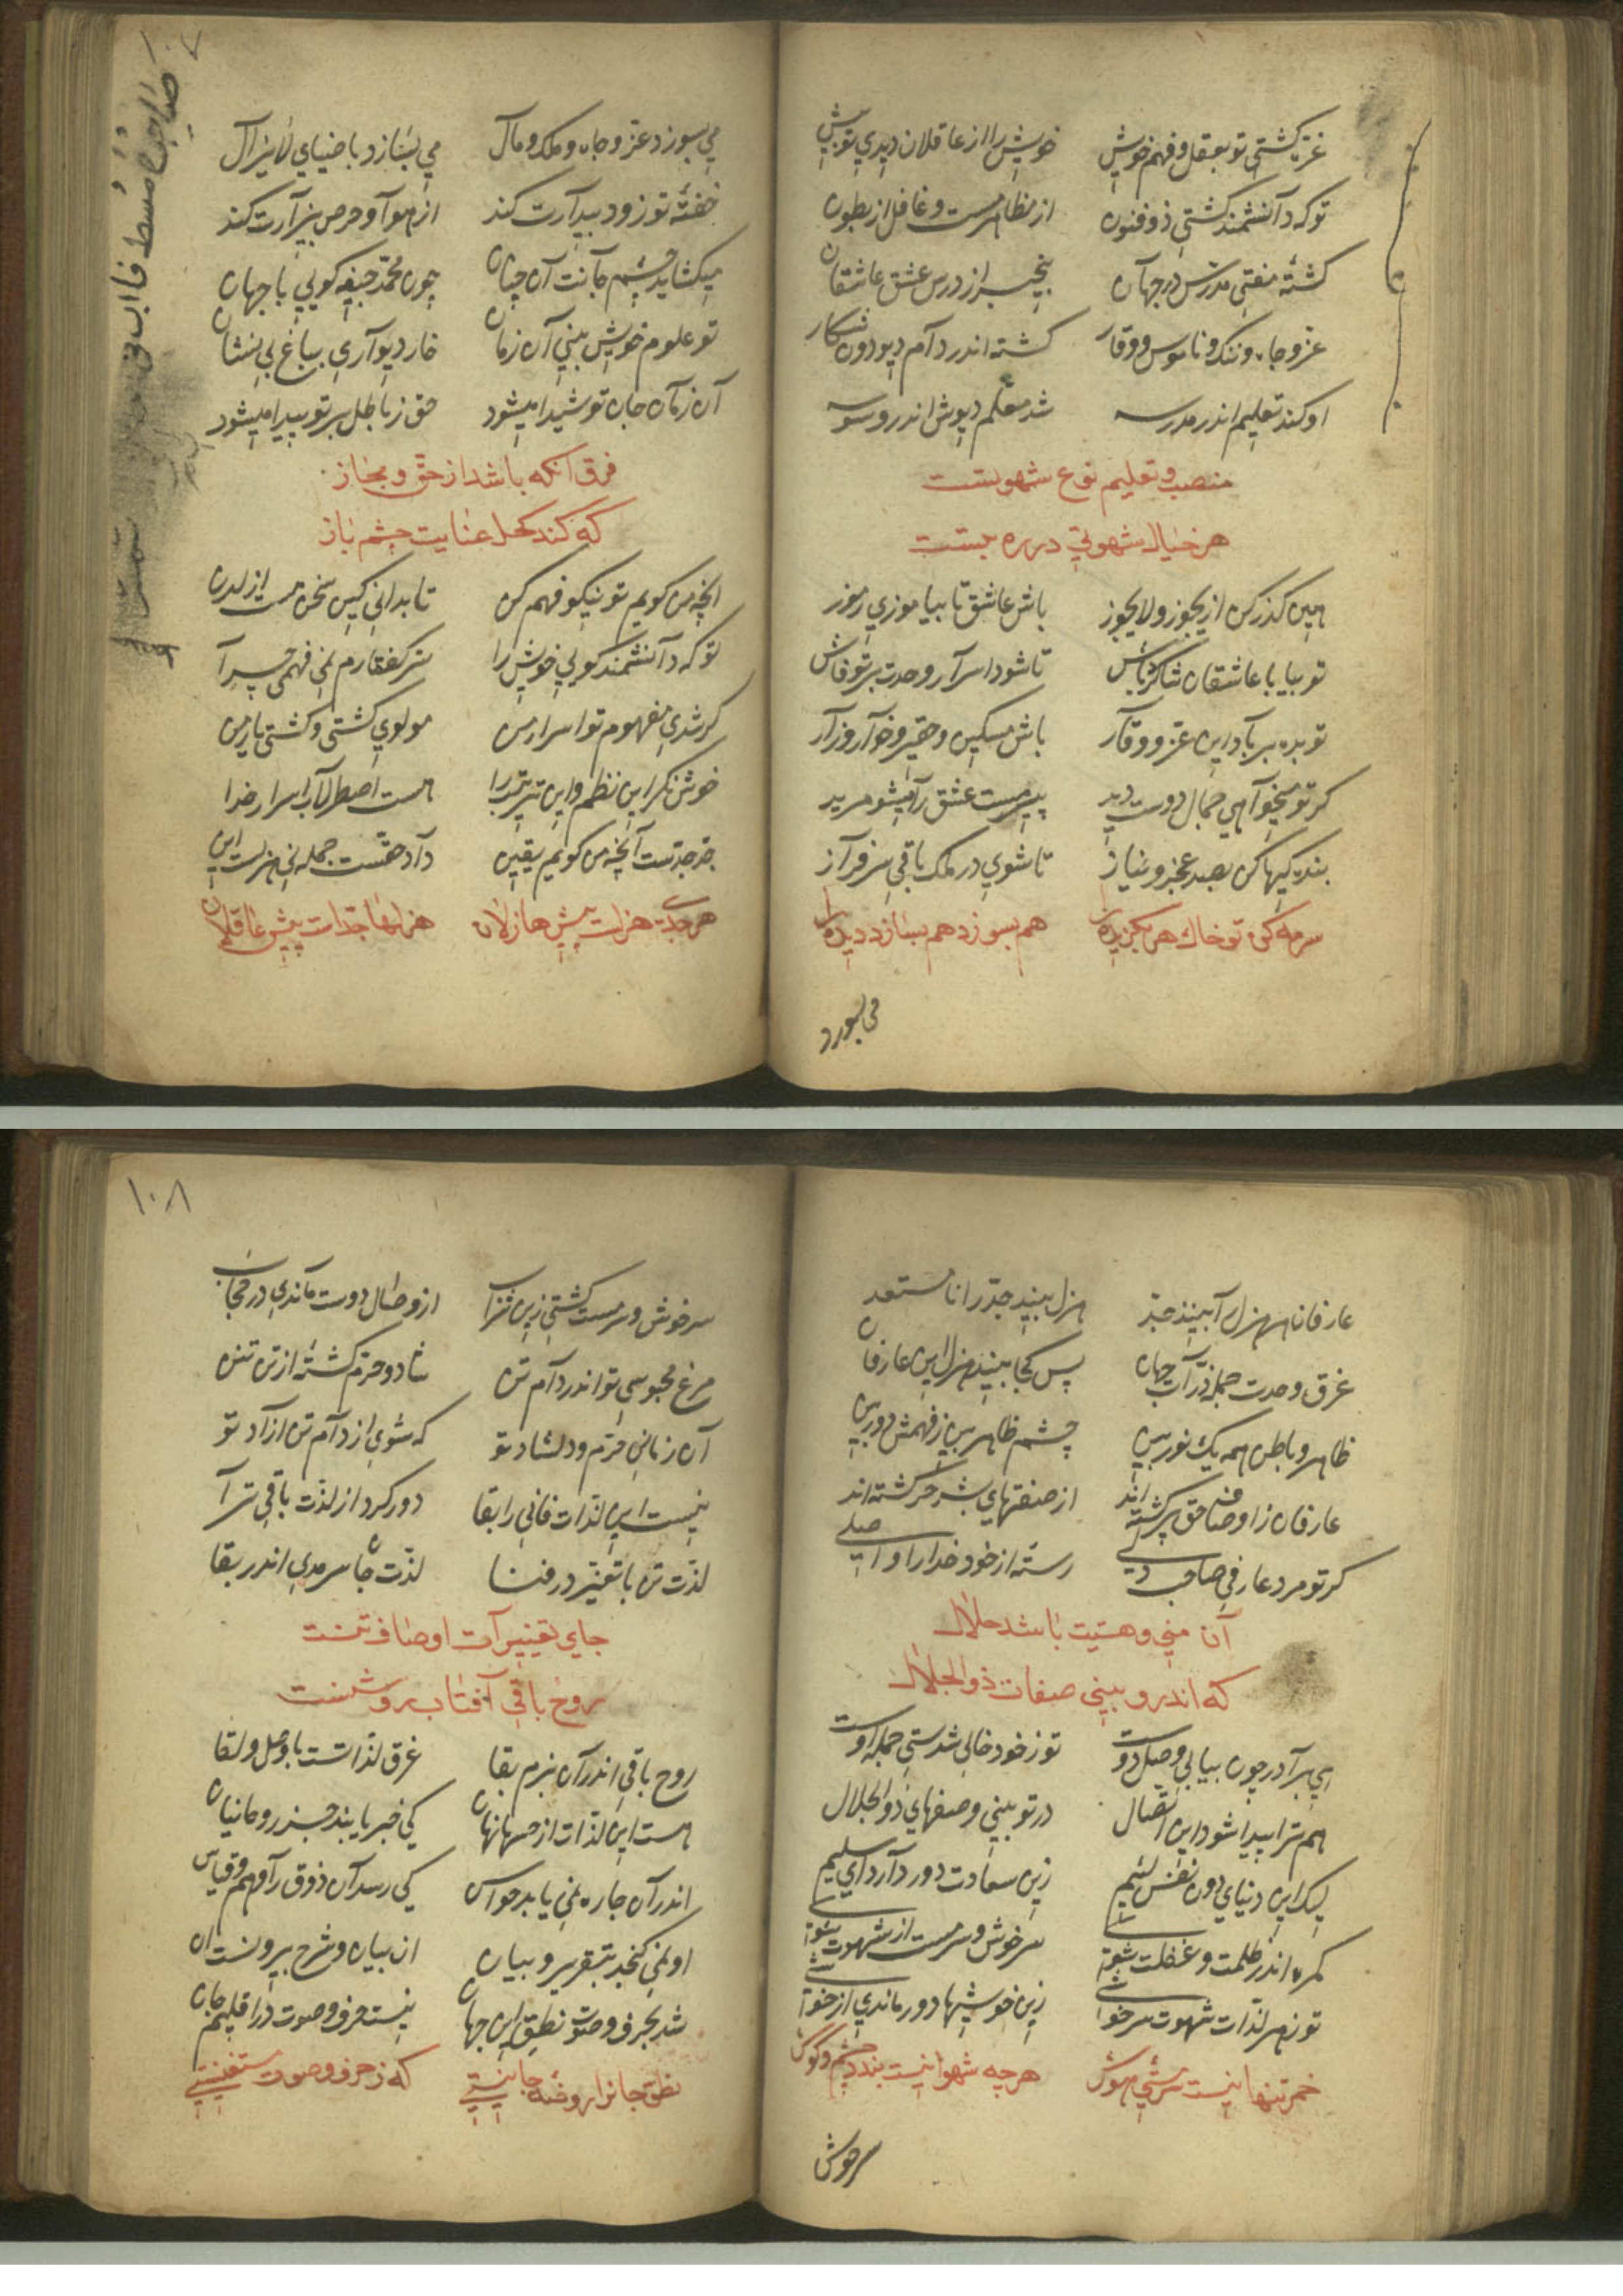 غره گشتی تو بعقل و فهم خویش خویش را از عاقلان دیدی تو بیش
تو که دانشمند گشتی ذوفنون از مظاهر مست و غافل از بطون
گشتهٔ مفتی مدرس در جهان بیخبر از درس عشق عاشقان
عز و جاه و ننک و ناموس و وقار گشته اندر دام دیو دون شکار
او کند تعلیم اندر مدرسه شد معلم دیوش اندر وسوسه
منصب و تعلیم نوع شهوتست
هر خیال شهوتی در ره بتست
هین گذر کن از یجوز و لا یجوز باش عاشق تا بیاموزی رموز
تو بیا با عاشقان شاگرد باش تا شود اسرار وحدت بر تو فاش
تو بده بر باد این عز و وقار باش مسکین و حقیر و خوار و زار
گر تو میخواهی جمال دوست دید پیر مست عشق را میشو مرید
بندگیها کن بصد عجز و نیاز تا شوی در ملک باقی سرفراز
سرمه کن تو خاک هر بگزیده را هم بسوزد هم بسازد دیده را
می بسوزد
می بسوزد عز و جاه و ملک و مال می بسازد با ضیای لایزال
خفتهٔ تو زود بیدارت کند از هوا و حرص بیزارت کند
میگشاید چشم جانت آن چنان چون محمد حیفه گویی با جهان
تو علوم خویش بینی آن زمان خار دیواری بباغ بی نشان
آن زمان جان تو شیدا میشود حق ز باطل بر تو پیدا میشود
فرق آنکه باشد از حق و مجاز
که کند کحل عنایت چشم باز
آنچه من گویم تو نیکو فهم کن تا بدانی کین سخن هست از لدن
تو که دانشمند گویی خویش را سر گفتارم نمی فهمی چرا
گر شدی مفهوم تو اسرار من مولوی گشتی و گشتی یار من
خوش نگر این نظم و این ترتیب را هست اصطرلاب اسرار خدا
جد جدست آنچه من گویم یقین داد حقست جمله نی هزلست این
هر جدی هزلست پیش هازلان هزلها جدست پیش عاقلان
۱۰۷
عارفان هر هزل را بینند جد هزل بیند جد را نامستعد
غرق وحدت جمله ذرات جهان پس کجا بینند هزل این عارفان
ظاهر و باطن همه یک نور بین چشم ظاهر بین ز فهمش دور بین
عارفان ز اوصاف حق پر گشته اند از صفتهای بشر حر گشته اند
گر تو مرد عارفی صاحب دلی رسته از خود خدا را واصلی
آن منی و هستیت باشد حلال
که اندرو بینی صفات ذوالجلال
ای برادر چون بیابی وصل دوست تو ز خود خالی شدستی جمله اوست
هم ترا پیدا شود این اتصال در تو بینی وصفهای ذوالجلال
لیک این دنیای دون نفس لئیم زین سعادت دور دارد ای سلیم
گمره اندر ظلمت و غفلت شوی سرخوش و سرمست از شهوت شوی
تو ز هر لذات شهوت سرخوشی زین خوشیها دور ماندی از خوشی
خمر تنها نیست سرمستی هوش هرچه شهوانیست بندد چشم و گوش
سرخوش
سرخوش و سرمست گشتی زین شراب از وصال دوست ماندی در حجاب
مرغ محبوسی تو اندر دام تن شاد و خرم گشتهٔ از تن تنن
آن زمانی خرم و دلشاد تو که شوی از دام تن آزاد تو
نیست این لذات فانی را بقا دور کرد از لذت باقی ترا
لذت تن با تغیر در فنا لذت جان سرمدی اندر بقا
جای تغییرات اوصاف تنست
روح باقی آفتاب روشنست
روح باقی اندر آن بزم بقا غرق لذاتست با وصل و لقا
هست این لذات از حسها نهان کی خبر یابند جز روحانیان
اندر آن جا ره نمی یابد حواس کی رسد آن ذوق را وهم و قیاس
او نمی گنجد بتقریر و بیان از بیان و شرح بیرونست آن
شد بحرف و صوت نطق این جهان نیست حرف و صوت در اقلیم جان
نطق جانرا روضهٔ جانیستی که ز حرف و صوت مستغنیستی
۱۰۸